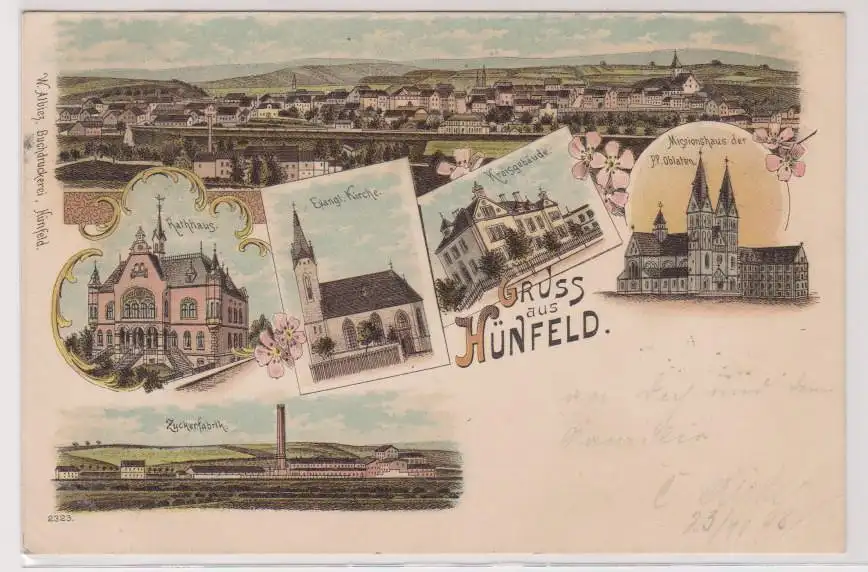 W. Albieg, Buchdruckerei, Hünfeld.
Missionshaus der
PP. Oblaten.
Kreisgebäude.
Evangl. Kirche.
Rathhaus.
GRUSS
aus
HÜNFELD.
Zuckerfabrik.
und
Familie
23/
2323.